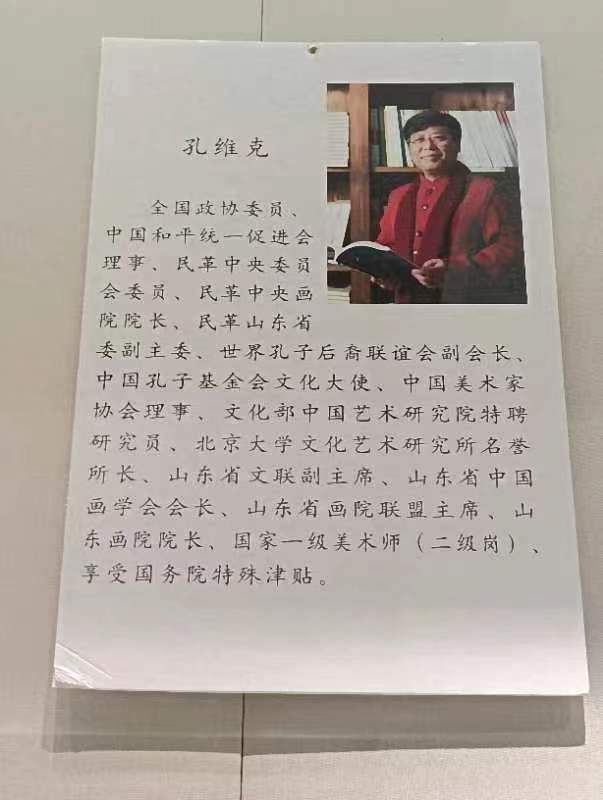 孔维克
全国政协委员、
中国和平统一促进会
理事、民革中央委员
会委员、民革中央画
院院长、民革山东省
委副主委、世界孔子后裔联谊会副会长、
中国孔子基金会文化大使、中国美术家
协会理事、文化部中国艺术研究院特聘
研究员、北京大学文化艺术研究所名誉
所长、山东省文联副主席、山东省中国
画学会会长、山东省画院联盟主席、山
东画院院长、国家一级美术师（二级岗）、
享受国务院特殊津贴。